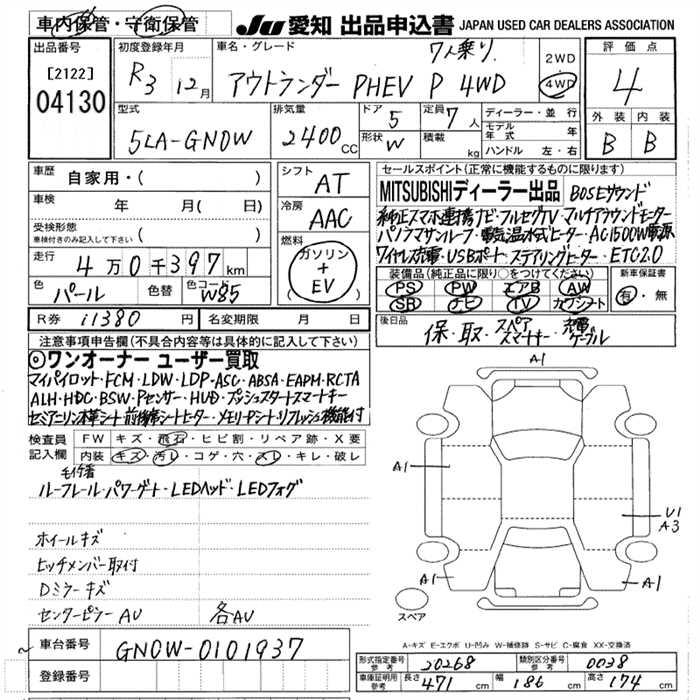 車内保管・守衛保管
JU 愛知 出品申込書 JAPAN USED CAR DEALERS ASSOCIATION
出品番号 [2122] 04130
初度登録年月 R3 12月
車名・グレード 7人乗り アウトランダー PHEV P 4WD
2WD 4WD
評価点 4
外装 B 内装 B
型式 5LA-GN0W
排気量 2400 CC
ドア 5 形状 W
定員 7人 積載 kg
ディーラー・並行
モデル年式 年
ハンドル 左・右
車歴 自家用・( )
車検 年 月( 日)
受検形態 車検付きのみ記入して下さい ( )
走行 4万0千397km
色 パール 色替 色コード W85
シフト AT
冷房 AAC
燃料 ガソリン + EV
R券 11380 円 名変期限 月 日
セールスポイント(正常に機能するものに限ります)
MITSUBISHIディーラー出品 BOSEサウンド
純正スマホ連携ナビ・フルセグTV・マルチアラウンドモニター
パノラマサンルーフ・電気温水式ヒーター・AC1500W電源
ワイヤレス充電・USBポート・ステアリングヒーター・ETC2.0
装備品(純正品に限り○をつけてください)
PS PW エアB AW
SR ナビ TV カワシート
新車保証書 有・無
後日品 保・取・スペアスマートキー・充電ケーブル
注意事項申告欄(不具合内容等は具体的に記入して下さい)
◎ワンオーナー ユーザー買取
マイパイロット・FCM・LDW・LDP・ASC・ABSA・EAPM・RCTA
ALH・HDC・BSW・Pセンサー・HUD・プッシュスタートスマートキー
セミアニリン本革シート前後席シートヒーター・メモリーPシート・リフレッシュ機能付
検査員記入欄 FW キズ・飛石・ヒビ割・リペア跡・X要
内装 キズ・汚レ・コゲ・穴・スレ・キレ・破レ
毛付着
ルーフレール・パワーゲート・LEDヘッド・LEDフォグ
ホイールキズ
ヒッチメンバー取付
Dミラーキズ
センターピラーAU 各AU
A1
A1
U1
A3
A1
A1
スペア
A-キズ E-エクボ U-凹み W-補修跡 S-サビ C-腐食 XX-交換済
車台番号 GN0W-0101937
登録番号
形式指定番号 参考 20268 類別区分番号 参考 0038
車庫証明用 参考 長さ 471 cm 幅 186 cm 高さ 174 cm